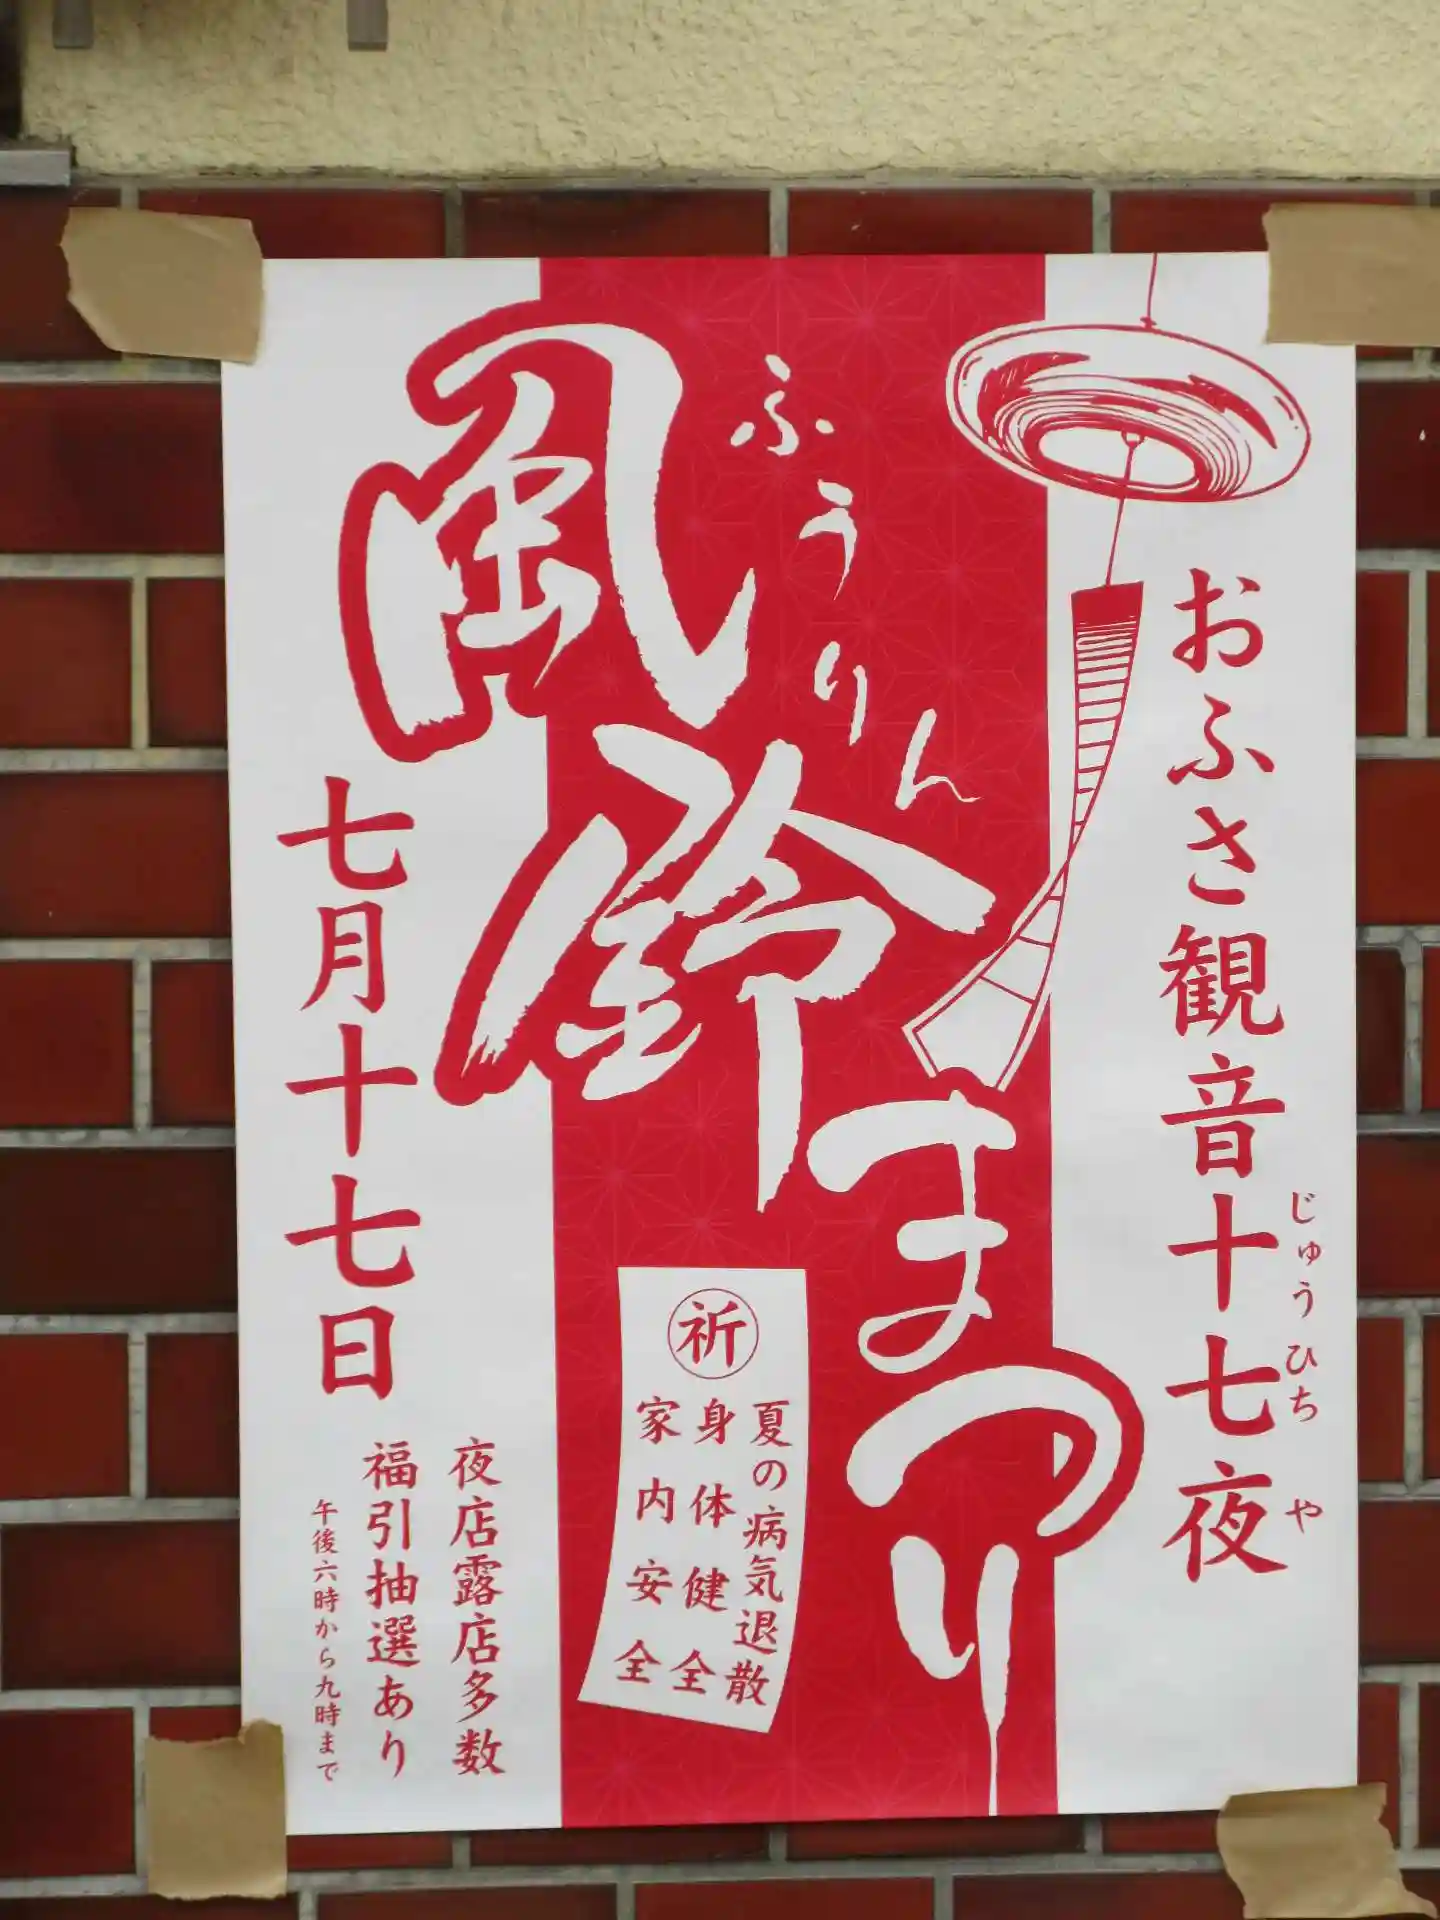 おふさ観音十七夜
じゅうひちや
ふうりん
風鈴まつり
祈
夏の病気退散
身体健全
家内安全
七月十七日
夜店露店多数
福引抽選あり
午後六時から九時まで